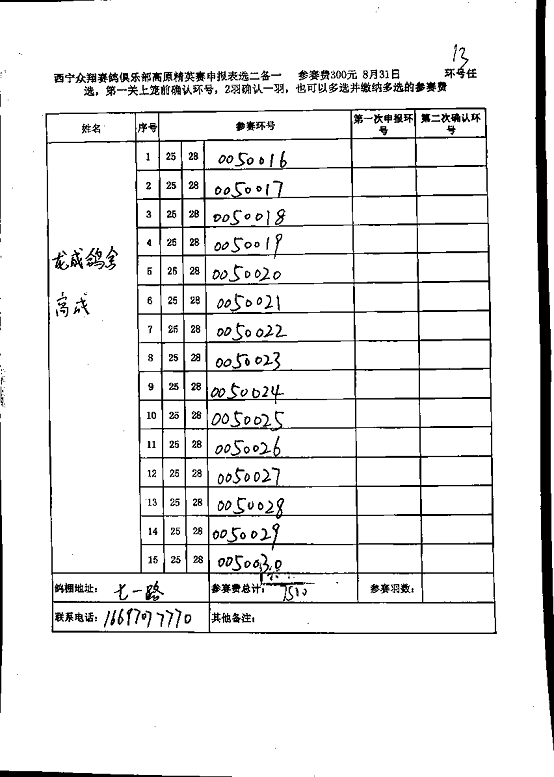 13
西宁众翔赛鸽俱乐部高原精英赛申报表选二备一 参赛费300元 8月31日 环号任
选，第一关上笼前确认环号，2羽确认一羽，也可以多选并缴纳多选的参赛费
姓名 序号 参赛环号 第一次申报环号 第二次确认环号
1 25 28 0050016
2 25 28 0050017
3 25 28 0050018
4 25 28 0050019
龙成鸽舍
5 25 28 0050020
高成
6 25 28 0050021
7 25 28 0050022
8 25 28 0050023
9 25 28 0050024
10 25 28 0050025
11 25 28 0050026
12 25 28 0050027
13 25 28 0050028
14 25 28 0050029
15 25 28 0050030
鸽棚地址： 七一路 参赛费总计： 参赛羽数：
联系电话： 16697077770 其他备注：